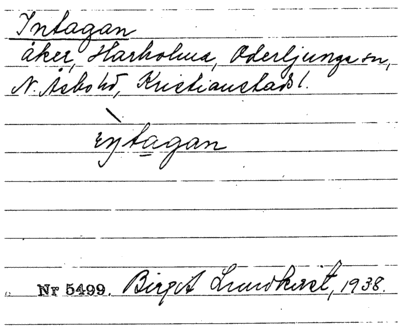 Intagan
åker, Harholma, Oderljunga sn,
N. Åsbo hd, Kristianstads l.
èytagan
Nr 5499. Birgit Lundkvist, 1938.